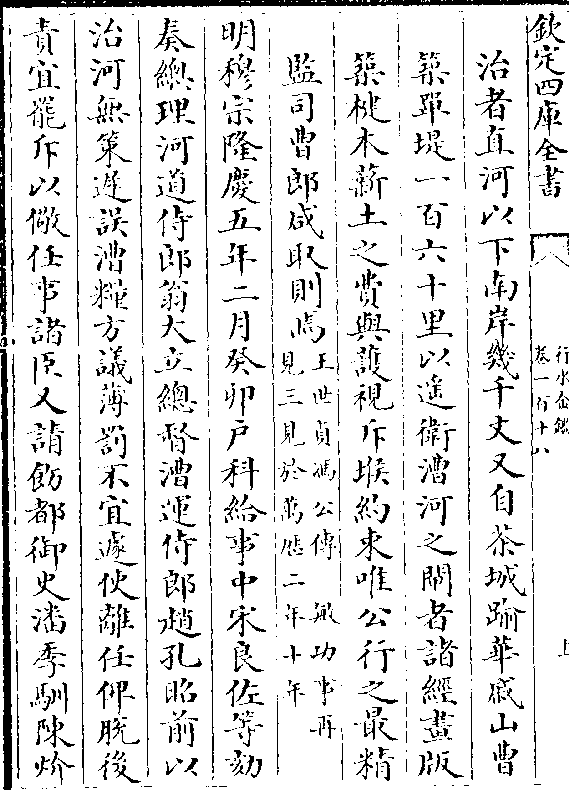 欽定四庫全書
行水金鑑
卷一百十八
上
治者直河以下南岸幾千丈又自茶城踰華戚山曹
築單堤一百六十里以遥衛漕河之閘者諸經畫版
築楗木薪土之費與䕶視斥堠約束唯公行之最精
監司曹郎咸取則焉
王世貞馮公傳　敏功事再
見三見於萬厯二年十年
明穆宗隆慶五年二月癸卯户科給事中宋良佐等劾
奏總理河道侍郎翁大立總督漕運侍郎趙孔昭前以
治河無策遲誤漕糧方議薄罰不宜遽使離任仰脱後
責宜罷斥以儆任事諸臣又請飭都御史潘季馴陳炌